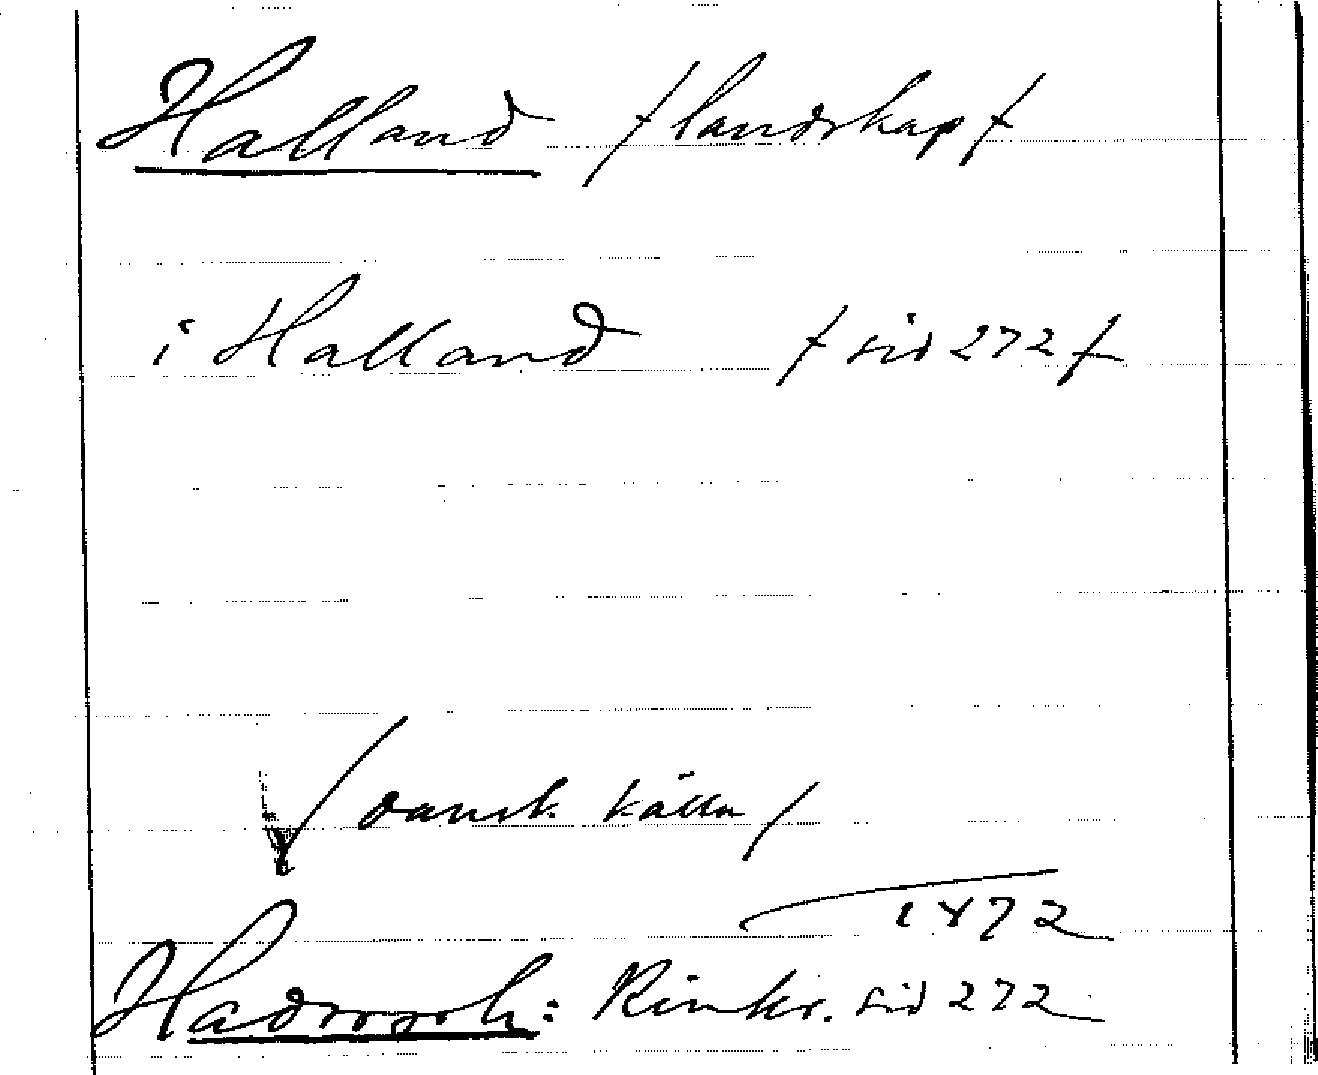 Halland /landskap/
i Halland / sid 272 /
/ dansk källa /
1472
Hadorph: Rimkr. sid 272